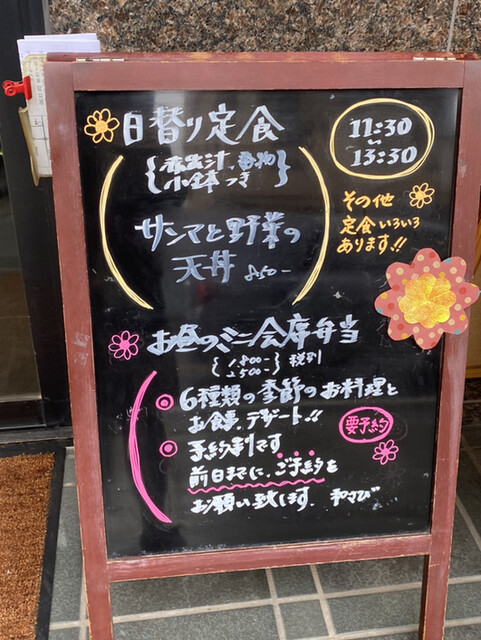 日替り定食
赤出汁、香物
小鉢つき
11:30
〜
13:30
サンマと野菜の
天丼 850-
その他
定食いろいろ
あります!!
お昼のミニ会席弁当
1,800-
2,500- 税別
6種類の季節のお料理と
お食事、デザート!!
要予約
予約制です
前日までに、ご予約を
お願い致します。和さび